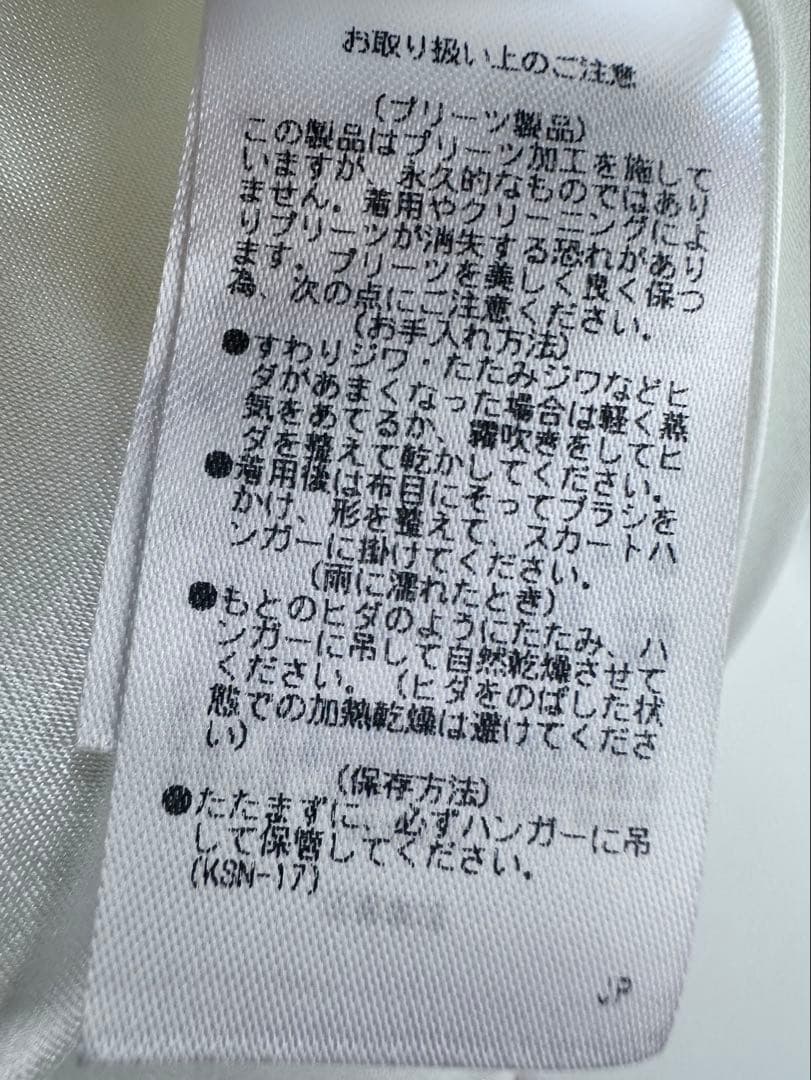 お取り扱い上のご注意
(プリーツ製品)
この製品はプリーツ加工を施して
いますが、永久的なものではあり
ません。着用やクリーニングにより
プリーツが消失する恐れがあ
ります。プリーツを美しく良く保つ
為、次の点にご注意ください。
(お手入れ方法)
●すわりジワ・たたみジワなどヒ
ダがあまくなった場合は軽く蒸
気をあてるか、霧吹きをしてヒ
ダを整えて乾かしてください。
●着用後は布目にそってブラシを
かけ、形を整えて、スカートハ
ンガーに掛けてください。
(雨に濡れたとき)
●もとのヒダのようにたたみ、ハ
ンガーに吊して自然乾燥させて
ください。(ヒダをのばした状
態での加熱乾燥は避けてくださ
い)
(保存方法)
●たたまずに、必ずハンガーに吊
して保管してください。
(KSN-17)
JP